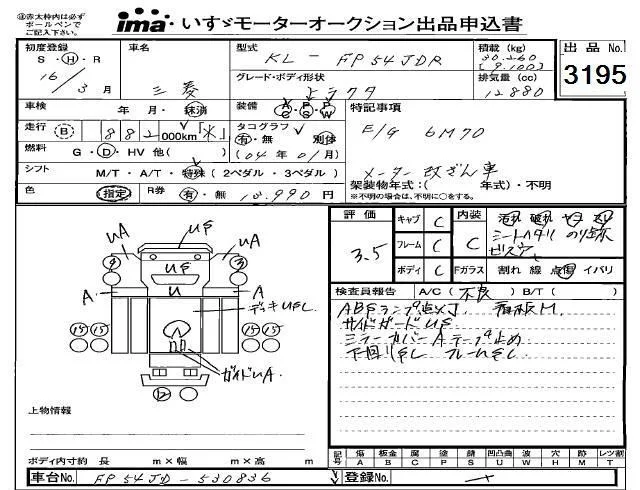 ※赤太枠内は必ず
ボールペンで
ご記入下さい。
ima いすゞモーターオークション出品申込書
初度登録 S・H・R 16/3月
車名 三菱
型式 KL-FP54JDR
積載(kg)
[9,100]
グレード・ボディ形状 トラクタ
排気量(cc) 12880
出品No. 3195
車検 年 月・抹消
装備 A/C P/S P/W
特記事項
走行 B 882 000km「米」
タコグラフ 有・無 別体
(04年01月)
E/G 6M70
燃料 G・D・HV 他( )
メーター改ざん車
シフト M/T・A/T・特殊(2ペダル・3ペダル)
架装物年式:( 年式)・不明
※不明の場合は、不明に○をする。
色 指定 R券 有・無 10,990円
評価 3.5
キャブ C
内装 C
フレーム C
ボディ C
シートヘタリ
ビス穴
Fガラス 割れ 線 点傷 イバリ
検査員報告 A/C(不良) B/T( )
ABSランプ点メ丁 看板M.
サイドガードUS
ミラーカバーAテープ止め
下回りSし フレームSし
UA US UA
9 US 3
A U A
デッキUSし
15 15 15 15
ガイドUA
上物情報
ボディ内寸約 長 m×幅 m×高 m
記号 傷A 板金B 腐C 塗P 錆S 凹凸曲U 波W 穴H 跡M レツ割T
車台No. FP54JD-530836
登録No.